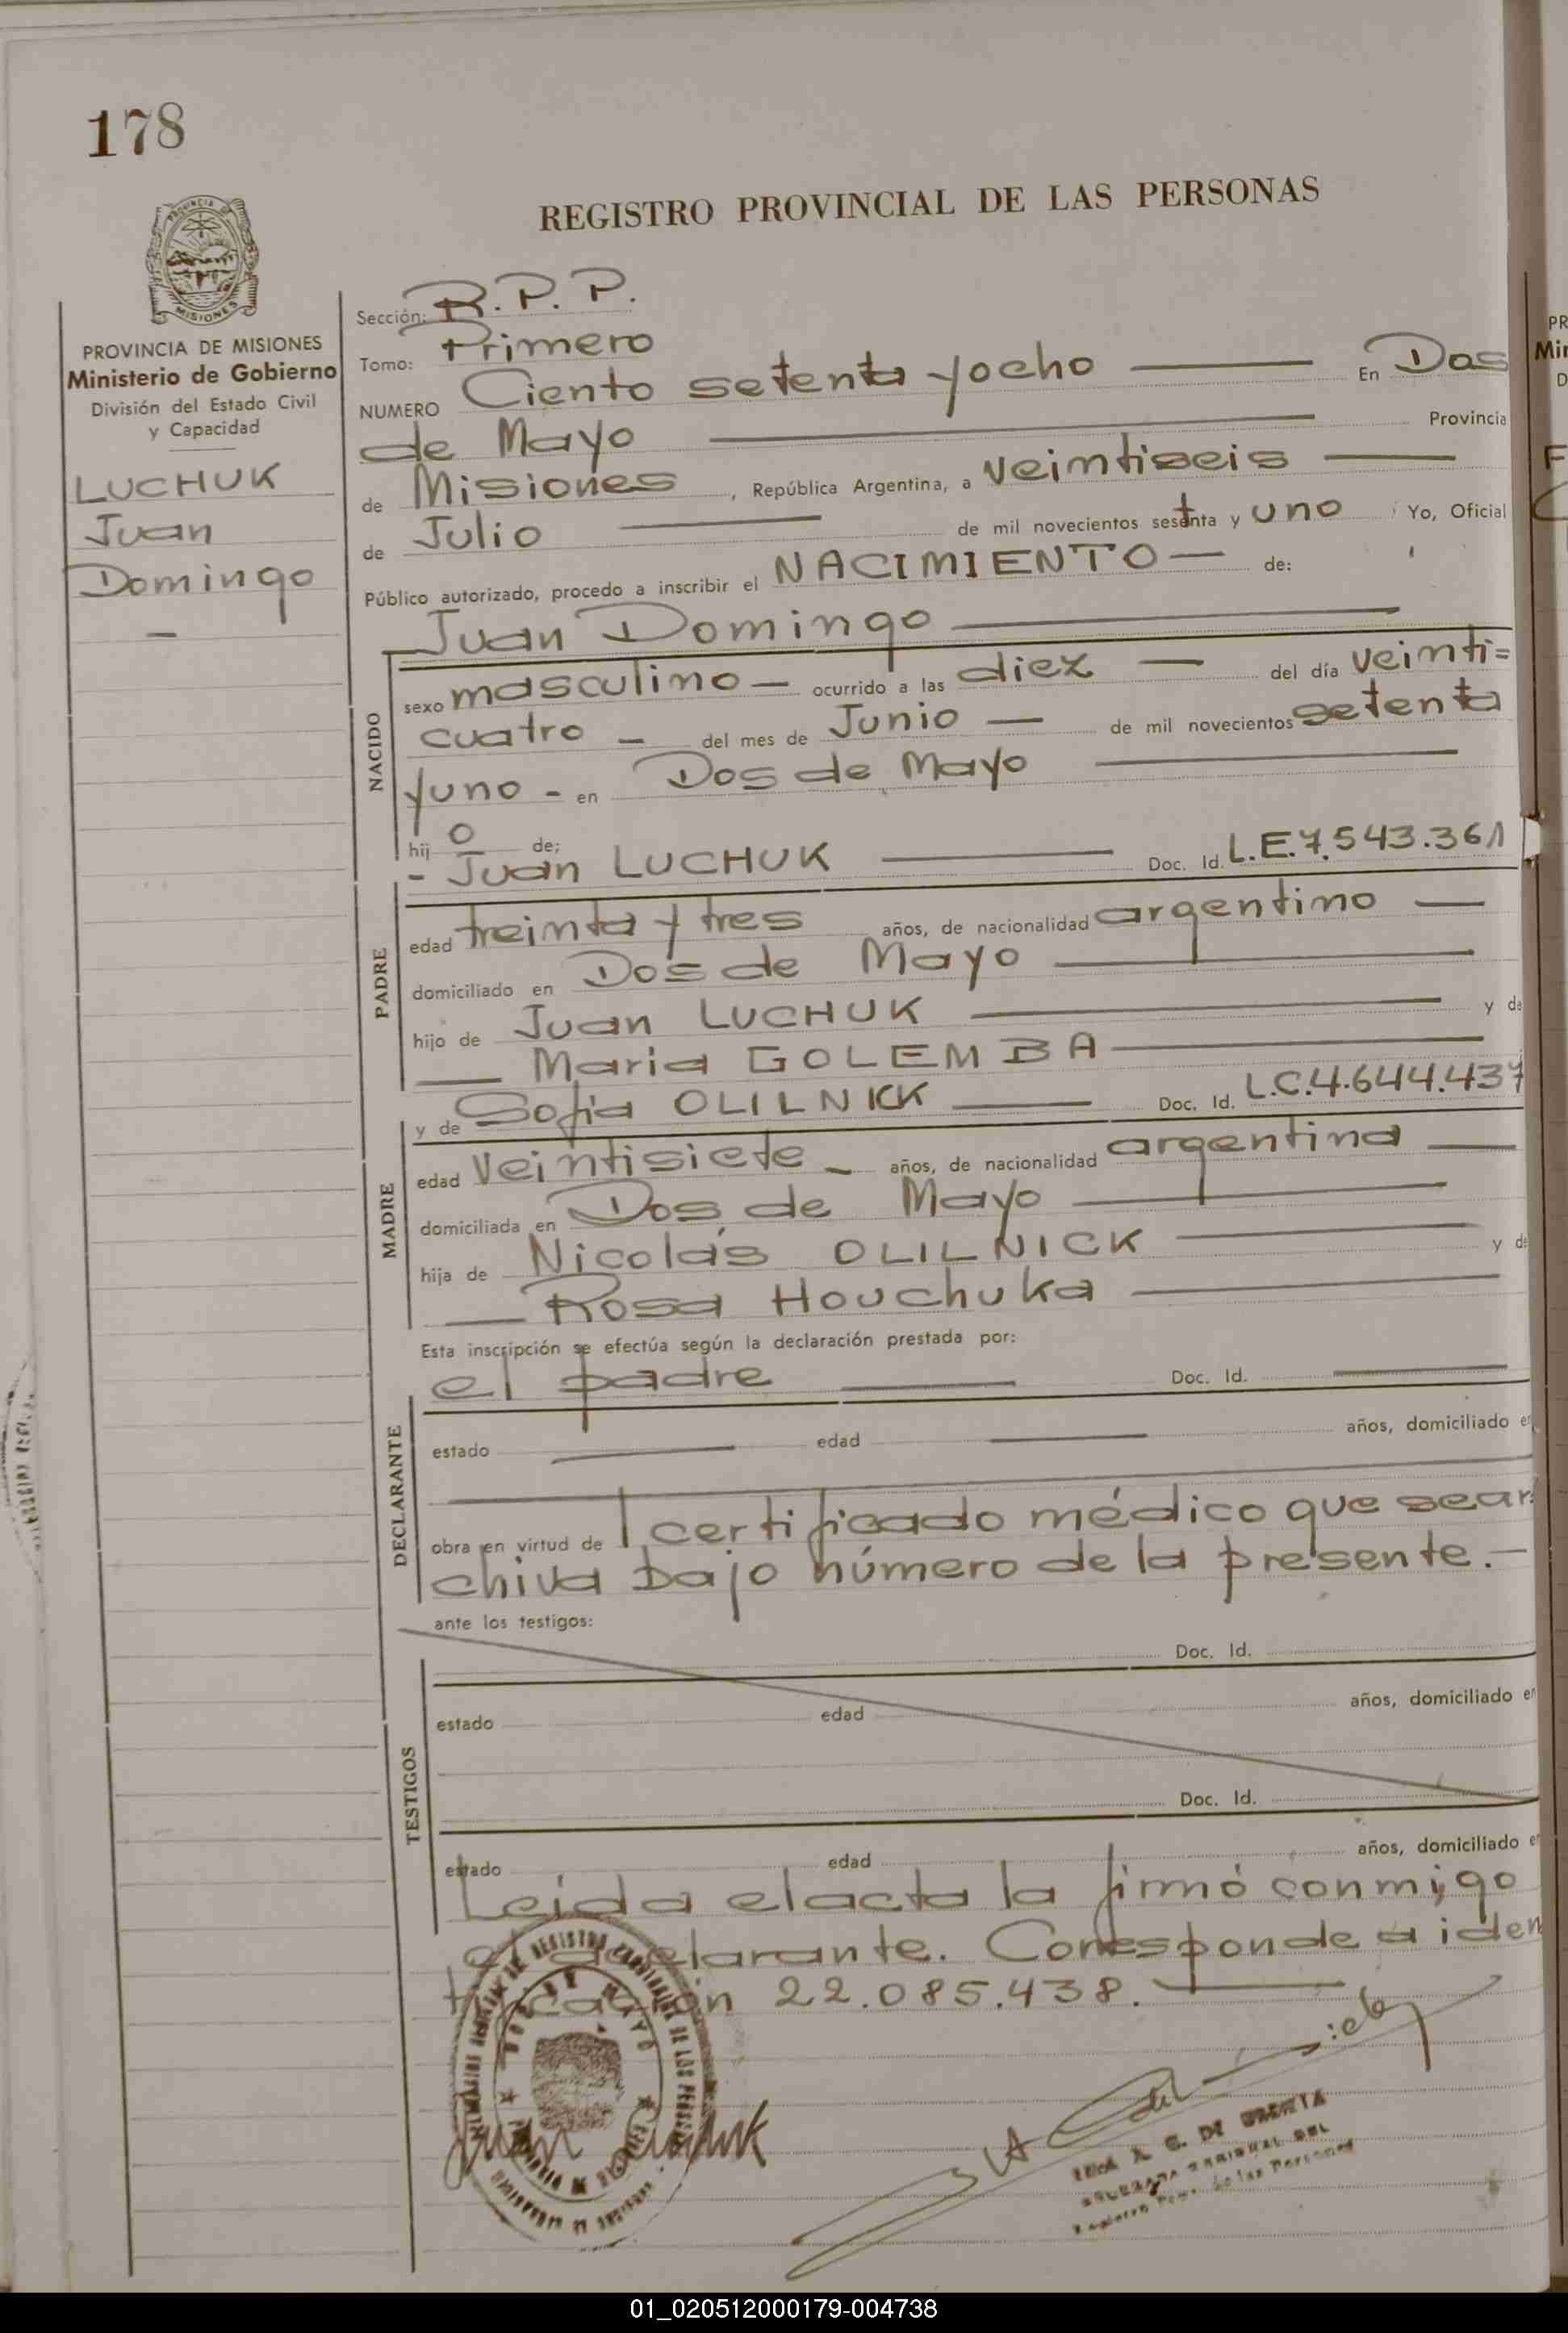 178
REGISTRO PROVINCIAL DE LAS PERSONAS
PROVINCIA DE MISIONES
Ministerio de Gobierno
División del Estado Civil
y Capacidad
LUCHUK
Juan
Domingo
—
Sección: R.P.P.
Tomo: Primero
NUMERO Ciento setenta y ocho — En Dos
de Mayo — Provincia
de Misiones, República Argentina, a veintiseis —
de Julio — de mil novecientos setenta y uno Yo, Oficial
Público autorizado, procedo a inscribir el NACIMIENTO — de:
Juan Domingo —
NACIDO
sexo masculino — ocurrido a las diez — del día veinti=
cuatro — del mes de Junio — de mil novecientos setenta
y uno - en Dos de Mayo —
hij o de;
- Juan LUCHUK — Doc. Id. L.E.7.543.361
PADRE
edad treinta y tres años, de nacionalidad argentino —
domiciliado en Dos de Mayo —
hijo de Juan LUCHUK — y de
— Maria GOLEMBA —
y de Sofia OLILNICK — Doc. Id. L.C.4.644.437
MADRE
edad veintisiete — años, de nacionalidad argentina —
domiciliada en Dos de Mayo —
hija de Nicolás OLILNICK — y de
— Rosa Houchuka —
Esta inscripción se efectúa según la declaración prestada por:
el padre — Doc. Id. —
DECLARANTE
estado — edad — años, domiciliado en
obra en virtud de l certificado médico que se ar-
chiva bajo número de la presente.—
ante los testigos:
Doc. Id.
TESTIGOS
estado edad años, domiciliado en
Doc. Id.
estado edad años, domiciliado en
Leida el acta la firmó conmigo
el declarante. Corresponde a iden
tificación 22.085.438. —
DOS DE MAYO
Juan Luchuk
01_020512000179-004738